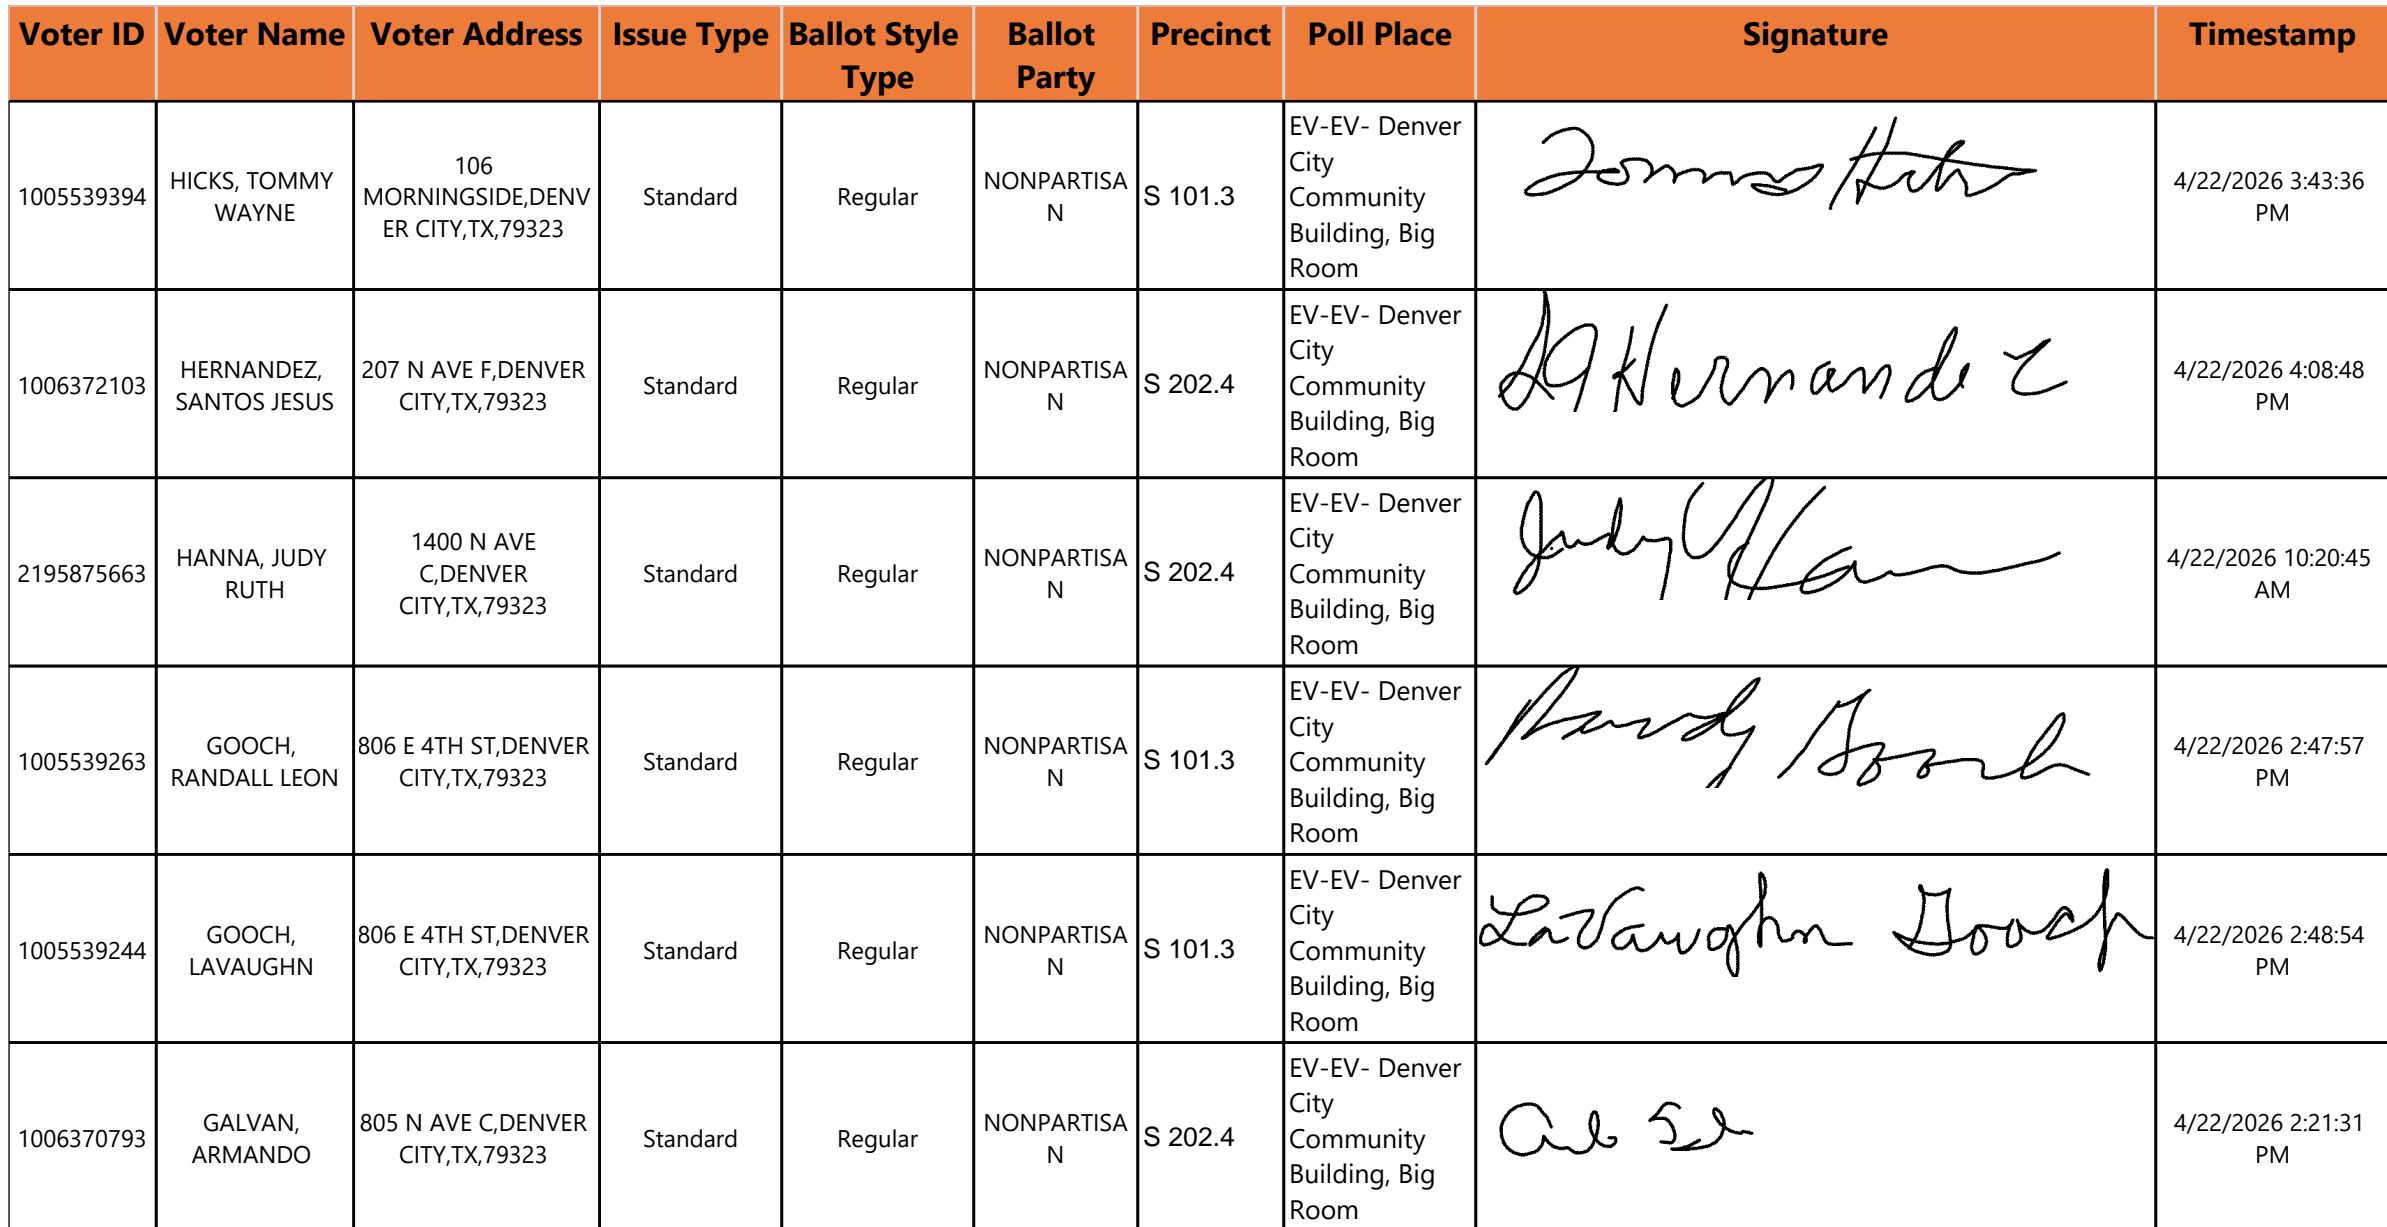 Voter ID Voter Name Voter Address Issue Type Ballot Style Type Ballot Party Precinct Poll Place Signature Timestamp
1005539394 HICKS, TOMMY WAYNE 106 MORNINGSIDE,DENVER CITY,TX,79323 Standard Regular NONPARTISAN S 101.3 EV-EV- Denver City Community Building, Big Room Tommy Hicks 4/22/2026 3:43:36 PM
1006372103 HERNANDEZ, SANTOS JESUS 207 N AVE F,DENVER CITY,TX,79323 Standard Regular NONPARTISAN S 202.4 EV-EV- Denver City Community Building, Big Room SJ Hernandez 4/22/2026 4:08:48 PM
2195875663 HANNA, JUDY RUTH 1400 N AVE C,DENVER CITY,TX,79323 Standard Regular NONPARTISAN S 202.4 EV-EV- Denver City Community Building, Big Room Judy 4/22/2026 10:20:45 AM
1005539263 GOOCH, RANDALL LEON 806 E 4TH ST,DENVER CITY,TX,79323 Standard Regular NONPARTISAN S 101.3 EV-EV- Denver City Community Building, Big Room Randy Gooch 4/22/2026 2:47:57 PM
1005539244 GOOCH, LAVAUGHN 806 E 4TH ST,DENVER CITY,TX,79323 Standard Regular NONPARTISAN S 101.3 EV-EV- Denver City Community Building, Big Room LaVaughn Gooch 4/22/2026 2:48:54 PM
1006370793 GALVAN, ARMANDO 805 N AVE C,DENVER CITY,TX,79323 Standard Regular NONPARTISAN S 202.4 EV-EV- Denver City Community Building, Big Room 4/22/2026 2:21:31 PM